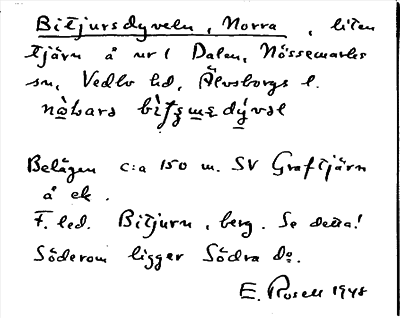 Bitjursdyveln, Norra, liten
tjärn å nr 1 Dalen, Nössemarks
sn, Vedbo hd, Älvsborgs l.
Belägen c:a 150 m. SV Graftjärn
å ek.
F. led. Bitjurn, berg. Se detta!
Söderom ligger Södra do.
E. Rosell 1948